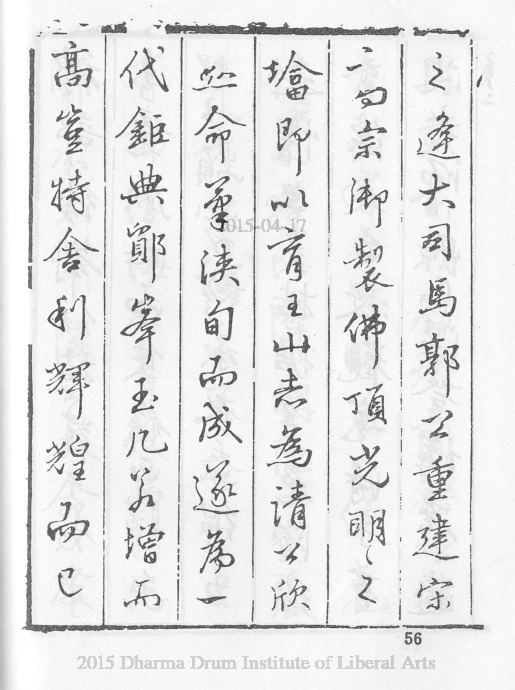 之逢大司馬郭公重建宋
高宗御製佛頂光明之
塔即以育王山志為請公欣
然命筆浹旬而成遂為一
代鉅典鄮峯玉几若增而
高豈特舍利輝煌而已
56
2015-04-17
2015 Dharma Drum Institute of Liberal Arts